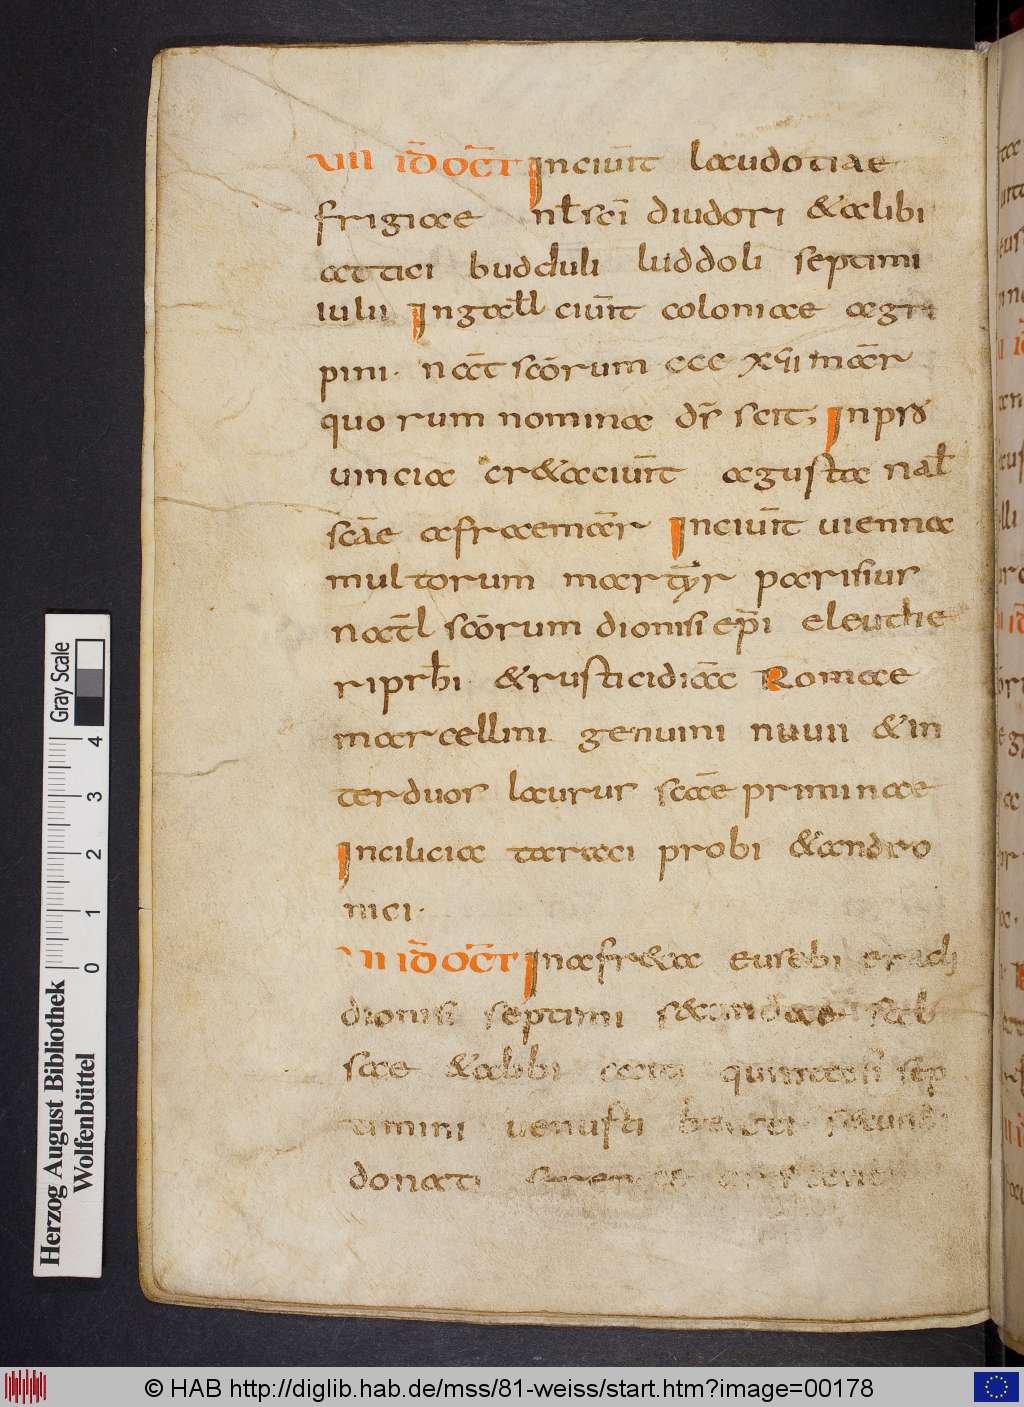 VII ID̄ OC̄T In ciūit laudotiae
frigiae nł sc̄i diudori &alibi
attici budduli luddoli septimi
iulii In gałł ciūit coloniae agri
pini· nāt sc̄orum ccc xỹii mār
quorum nomina dr̄ scit; In pro
uincia cr&a ciūit agusta nał
sc̄ae afrae mār In ciūit uienna
multorum martȳr parisius
nat̄l sc̄orum dionisi ep̄i eleuthe
ri prb̄i &rustici diāc Romae
marcellini genuini nuuii &in
ter duos laurus sc̄ae priminae
In cilicia taraci probi &andro
nici·
VII ID̄ OC̄T In afr&a eusebi eracli
dionisi septimi secundae sab
sae &abbi quintasi sep
timini uenusti secund
donati
Gray Scale
4 3 2 1 0
Herzog August Bibliothek
Wolfenbüttel
© HAB http://diglib.hab.de/mss/81-weiss/start.htm?image=00178